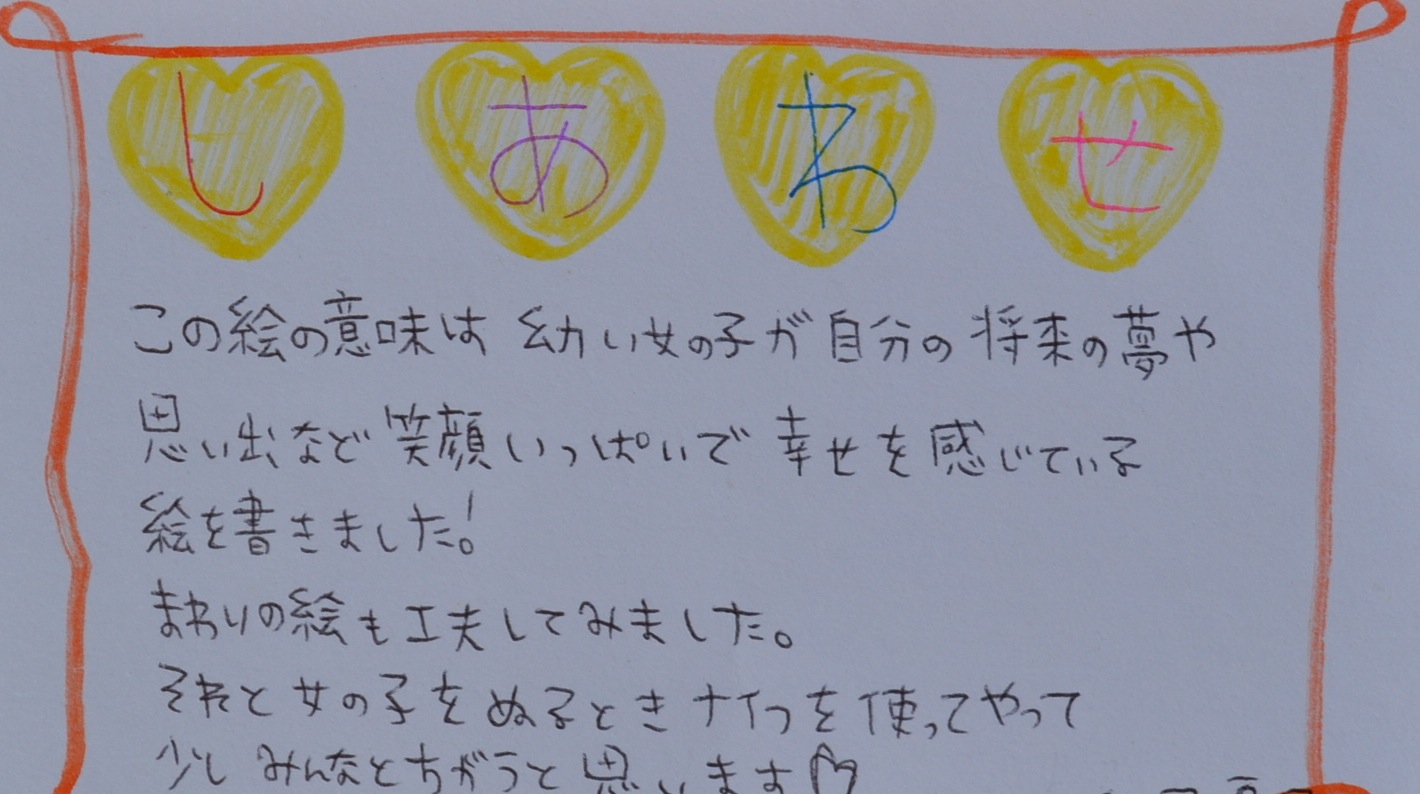 しあわせ
この絵の意味は幼い女の子が自分の将来の夢や
思い出など笑顔いっぱいで幸せを感じている
絵を書きました!
まわりの絵も工夫してみました。
それと女の子をぬるときナイフを使ってやって
少しみんなとちがうと思います♡